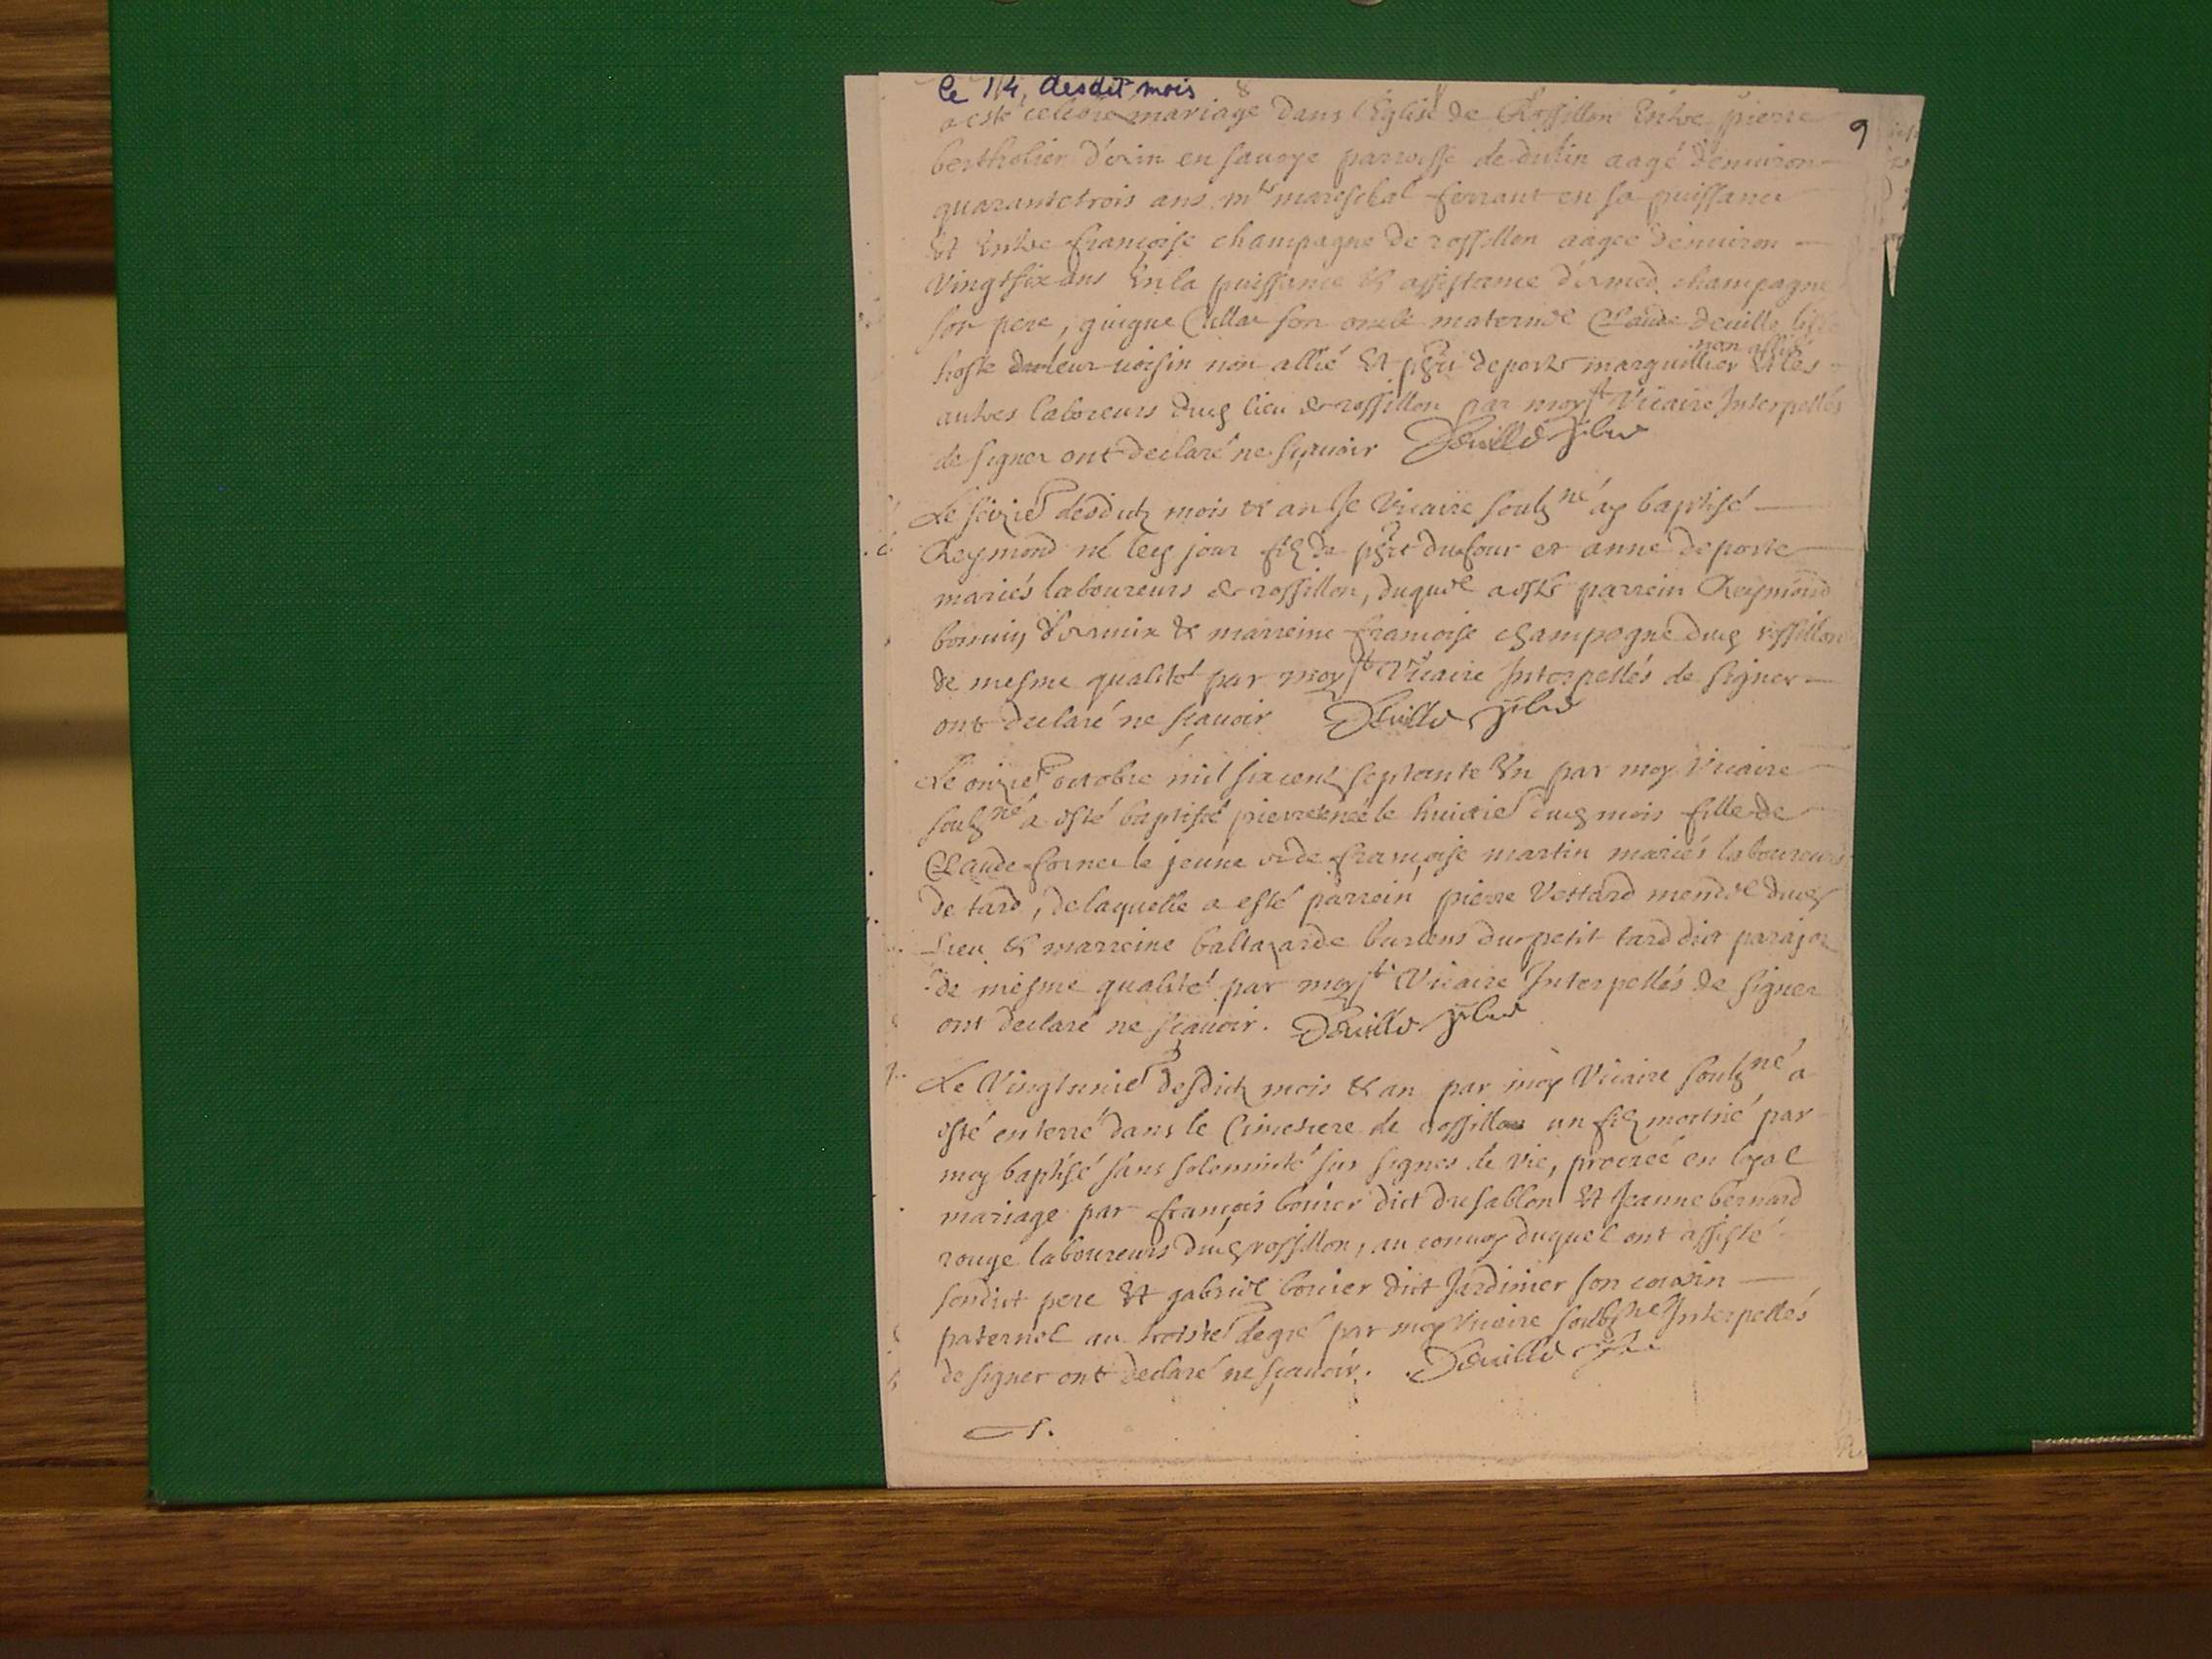 le 14, desdit mois
9
a esté celebré mariage dans l'Eglise de Rossillon Entre pierre
bertholier en savoye parroisse de dulin aagé d'environ
quarantetrois ans mareschal ferrant en sa puissance
Et Entre françoise champagne de rossillon aagee d'environ
Vingtsix ans En la puissance & assistance champagne
son pere, guigue son oncle maternel Claude deville
hoste voisin non allié Et deporte marguillier Et les
non allié
autres laboreurs dud lieu de rossillon par moy st Vicaire Interpellés
de signer ont declaré ne sçavoir Deville
Le seizie desdicts mois & an Je Vicaire soubsné ay baptisé
Reymond né led jour filz de dufour et anne deporte
mariés laboureurs de rossillon, duquel a esté parrein Reymond
& marreine françoise champagne dud rossillon
de mesme qualité par moy st Vicaire Interpellés de signer
ont declaré ne scavoir Deville
Le onzie octobre mil six cent septante Un par moy Vicaire
soubsné a esté baptisée née le huictie dud mois fille de
Claude fornet le jeune & de françoise martin mariés laboureurs
de tard, de laquelle a esté parrein pierre Vettard dud
Lieu & marreine baltazarde burlens du petit tard dict
de mesme qualité par moy st Vicaire Interpellés de signer
ont declaré ne sçavoir. Deville
Le Vingtunie desdicts mois & an par moy Vicaire soubsné a
esté enterré dans le Cimetiere de rossillon un filz mortné par
moy baptisé sans solemnité sur signes de vie, procreé en loyal
mariage par françois bonier dict du sablon Et Jeanne bernard
rouge laboureurs dud rossillon, au convoy duquel ont assisté
sondict pere Et gabriel bonier dict Jardinier son cousin
paternel au troisie degré par moy Vicaire soubsné Interpellés
de signer ont declaré ne sçavoir. Deville